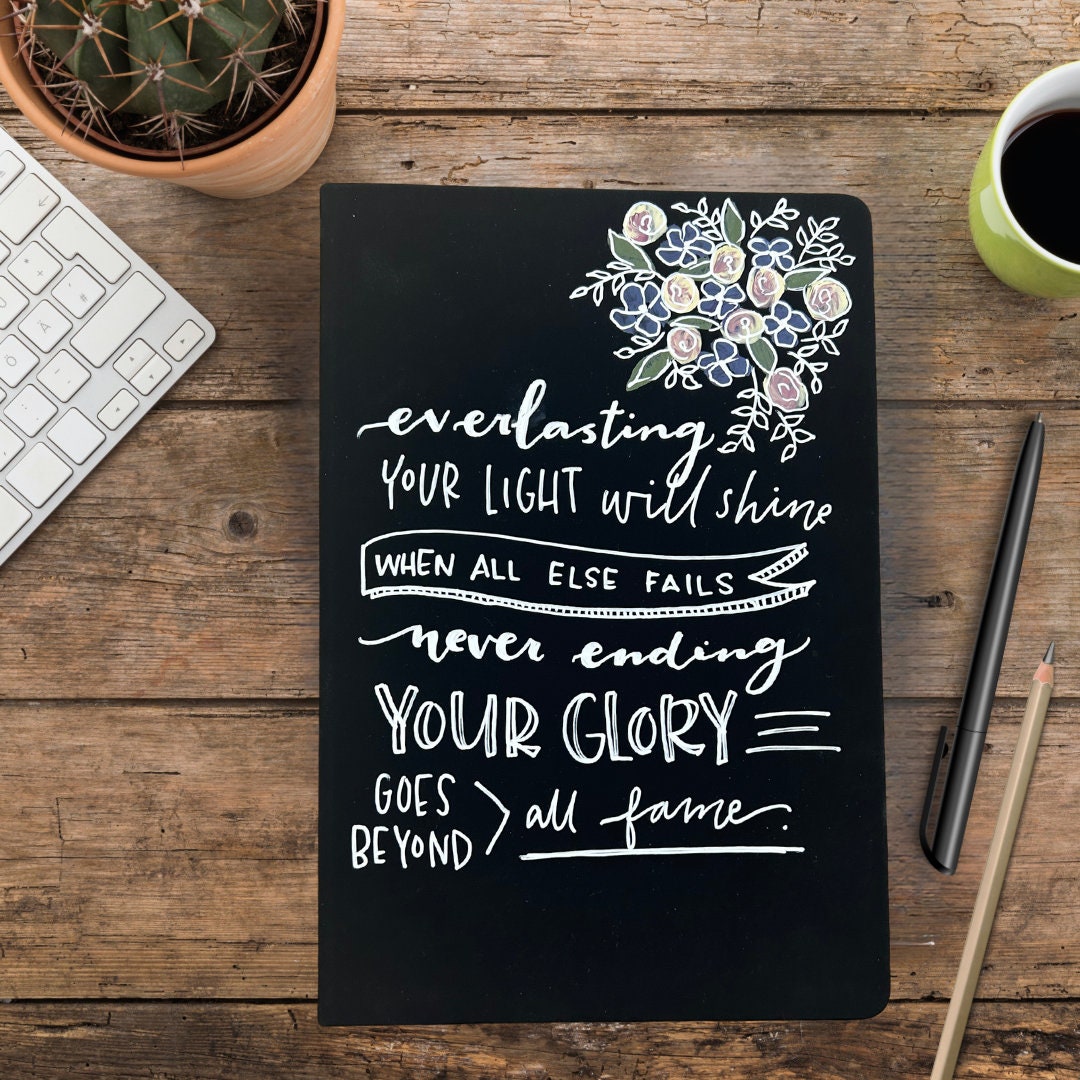 everlasting
YOUR LIGHT will shine
WHEN ALL ELSE FAILS
never ending
YOUR GLORY
GOES
BEYOND > all fame.